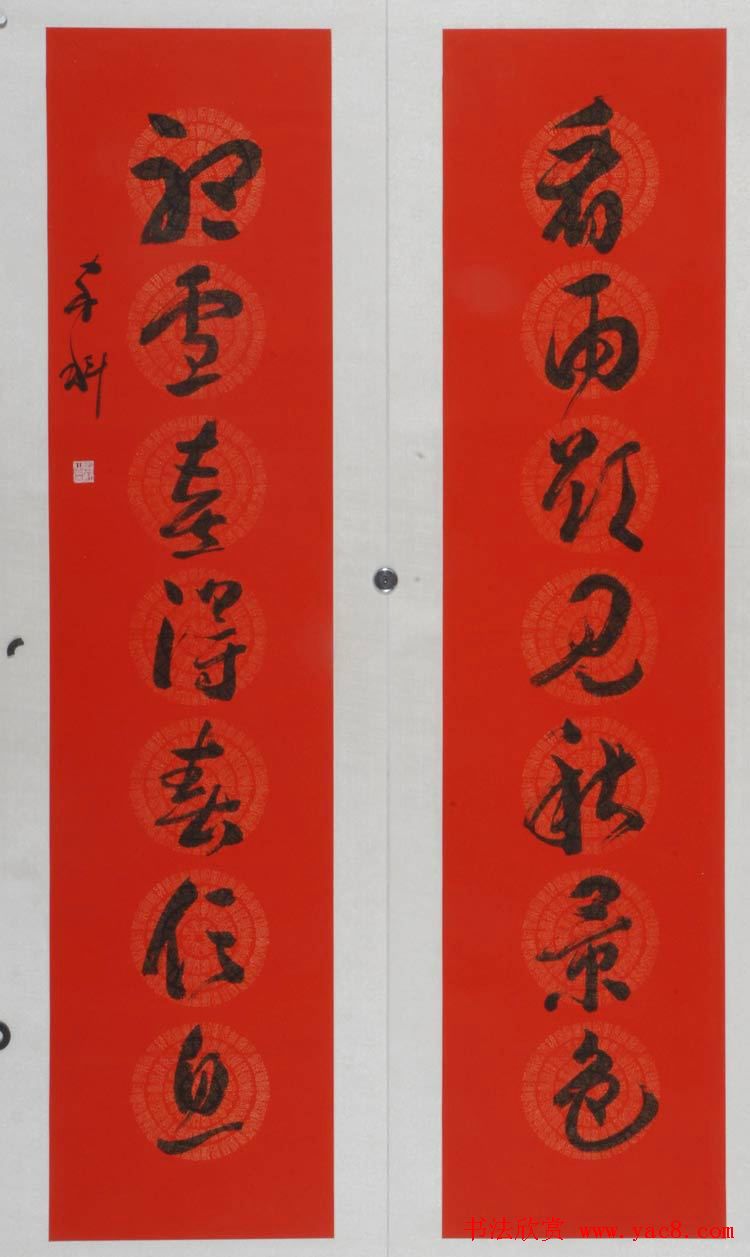 看雨歡見秋景色
雪喜得春信息
书法欣赏 www.yac8.com